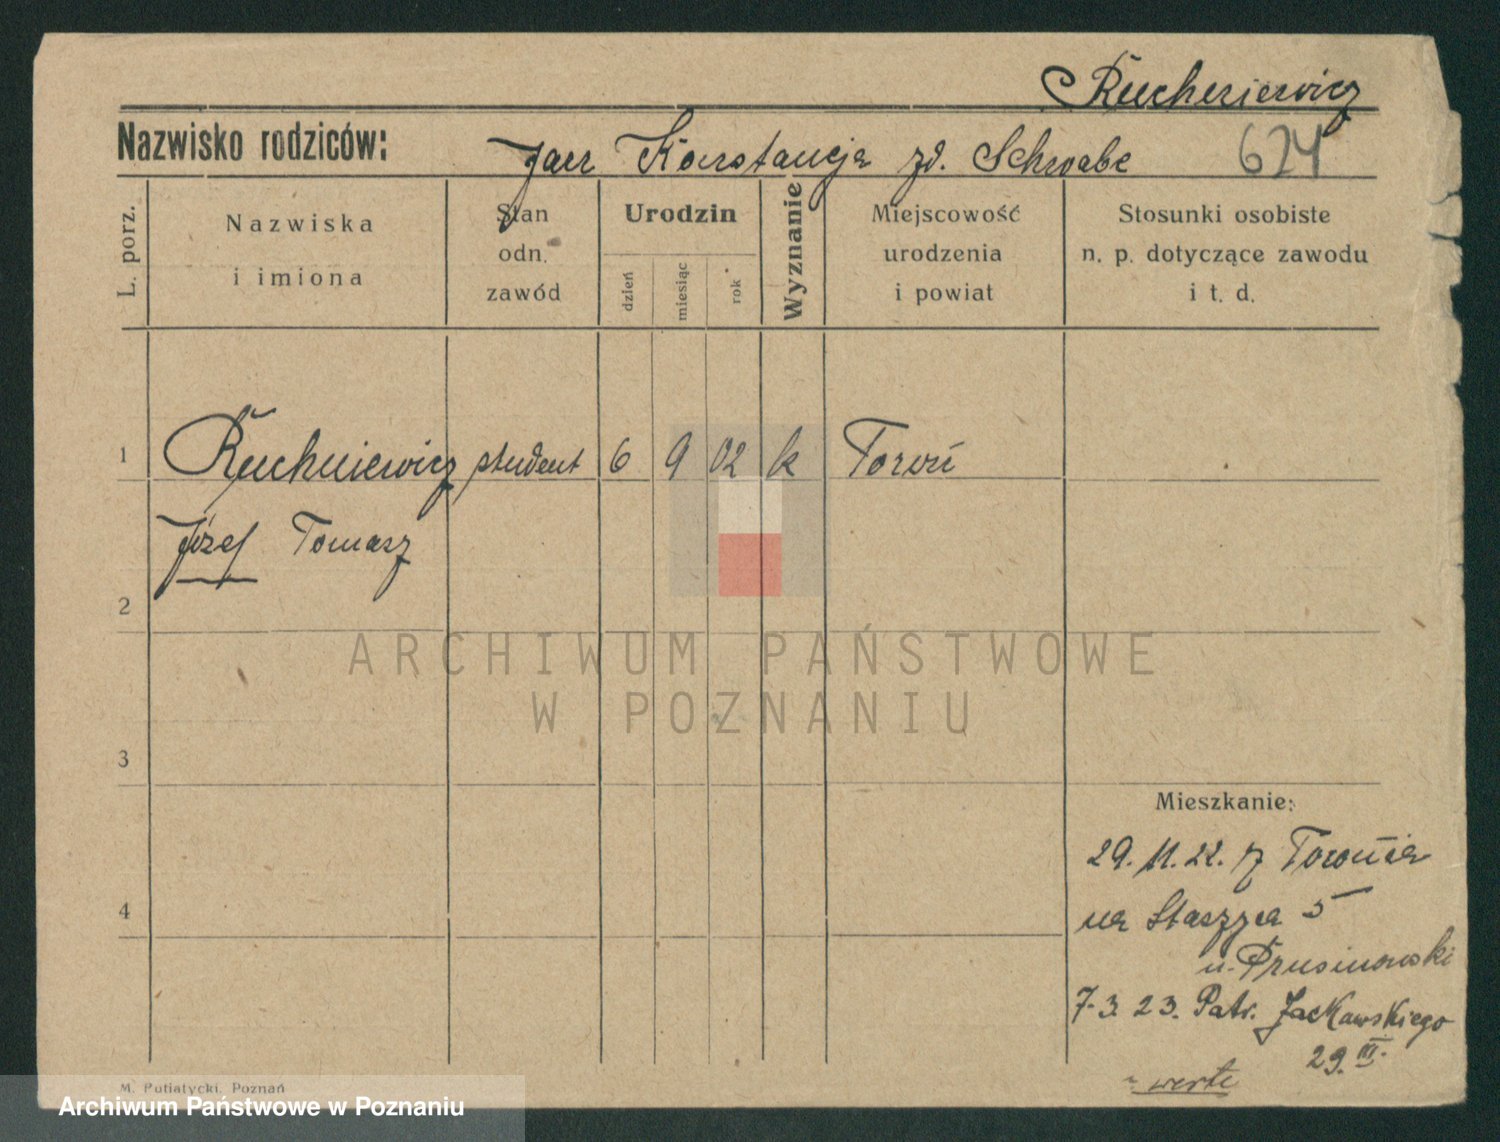 Ruchniewicz
Nazwisko rodziców: Jan Konstancja zd. Schwabe 624
L. porz.
Nazwiska i imiona
Stan odn. zawód
Urodzin
dzień
miesiąc
rok
Wyznanie
Miejscowość urodzenia i powiat
Stosunki osobiste n. p. dotyczące zawodu i t. d.
1 Ruchniewicz student 6 9 02 k Toruń
Józef Tomasz
2
ARCHIWUM PAŃSTWOWE
W POZNANIU
3
Mieszkanie:
29.11.22. z Torunia
4
na Staszyca 5
u. Prusinowski
7.3.23. Patr. Jackowskiego
29.III.
werte
M. Putiatycki, Poznań
Archiwum Państwowe w Poznaniu